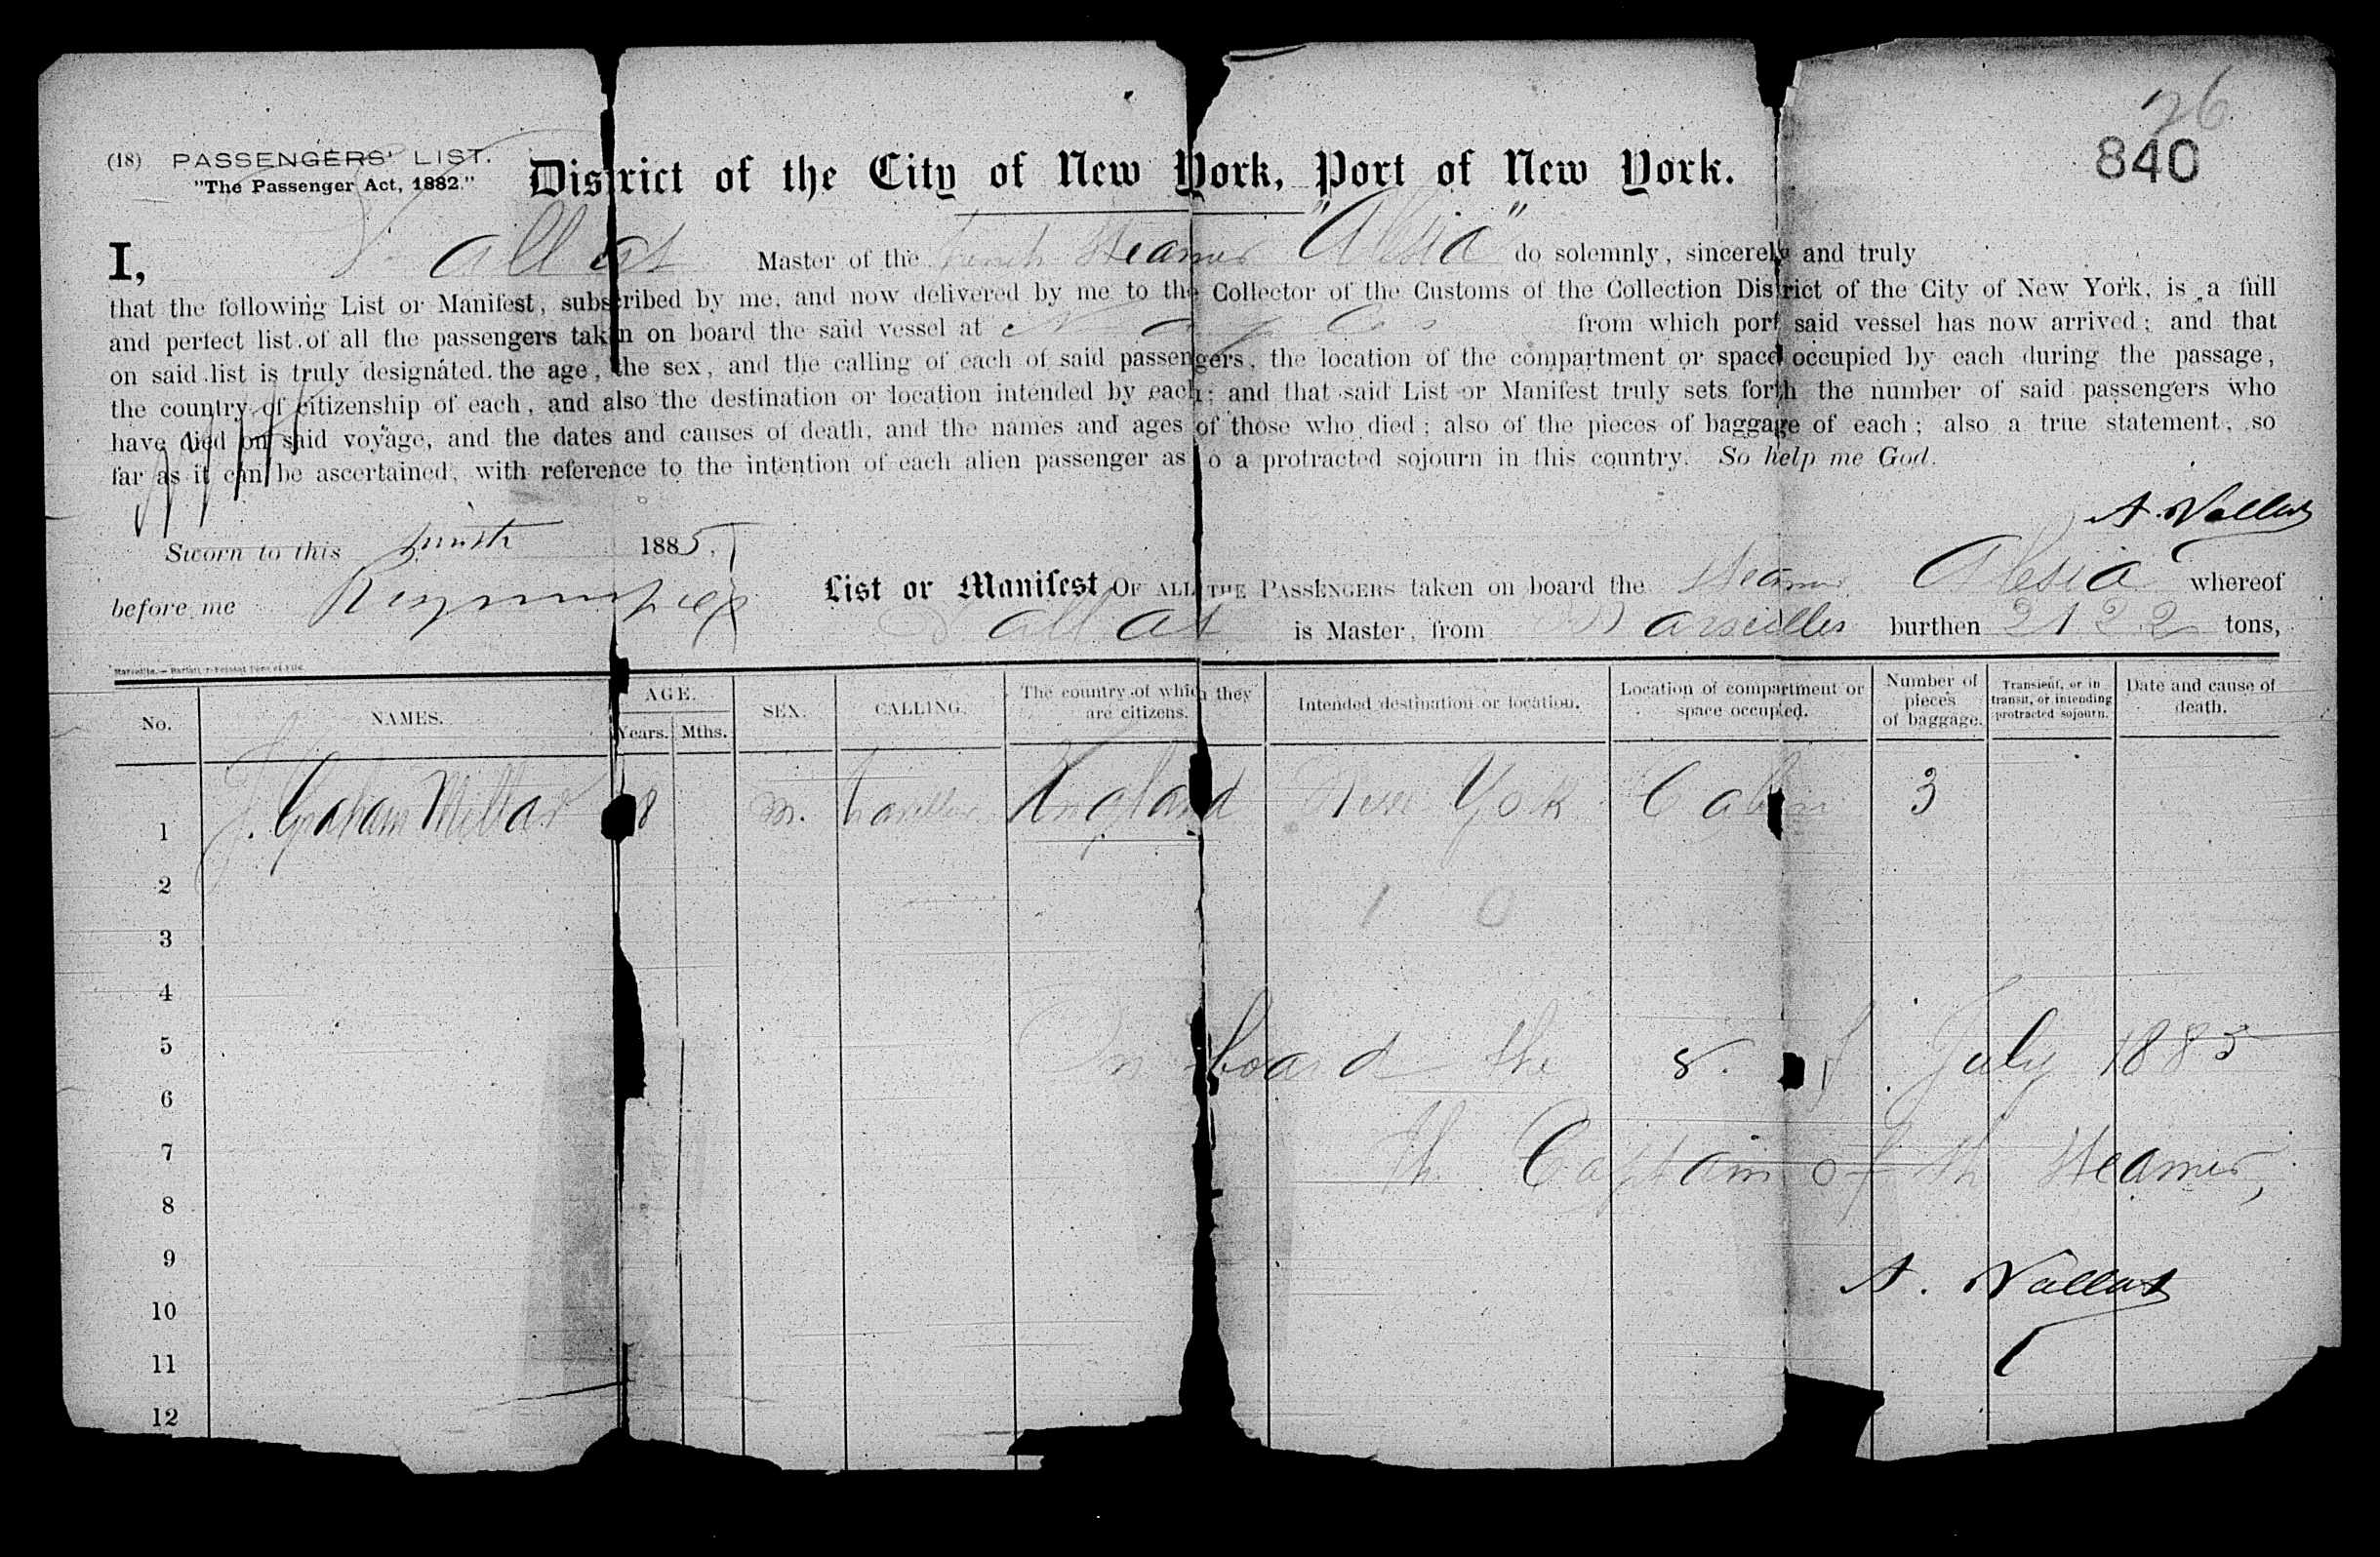 26
840
(18) PASSENGERS' LIST.
"The Passenger Act, 1882."
District of the City of New York, Port of New York.
I, Vallat Master of the French Steamer "Alesia" do solemnly, sincerely and truly
that the following List or Manifest, subscribed by me, and now delivered by me to the Collector of the Customs of the Collection District of the City of New York, is a full
and perfect list of all the passengers taken on board the said vessel at from which port said vessel has now arrived; and that
on said list is truly designated, the age, the sex, and the calling of each of said passengers, the location of the compartment or space occupied by each during the passage,
the country of citizenship of each, and also the destination or location intended by each; and that said List or Manifest truly sets forth the number of said passengers who
have died on said voyage, and the dates and causes of death, and the names and ages of those who died; also of the pieces of baggage of each; also a true statement, so
far as it can be ascertained, with reference to the intention of each alien passenger as to a protracted sojourn in this country. So help me God.
A. Vallat
Sworn to this 1885,
before me
List or Manifest OF ALL THE PASSENGERS taken on board the Steamer Alesia whereof
Vallat is Master, from Marseilles burthen 2122 tons,
No. NAMES. AGE. Years. Mths. SEX. CALLING. The country of which they are citizens. Intended destination or location. Location of compartment or space occupied. Number of pieces of baggage. Transient, or in transit, or intending protracted sojourn. Date and cause of death.
1 J. Graham Millar 8 m. England New York Cabin 3
2
3
4
5 On board the 8. of July 1885
6
7 The Captain of the Steamer,
8
9
10 A. Vallat
11
12